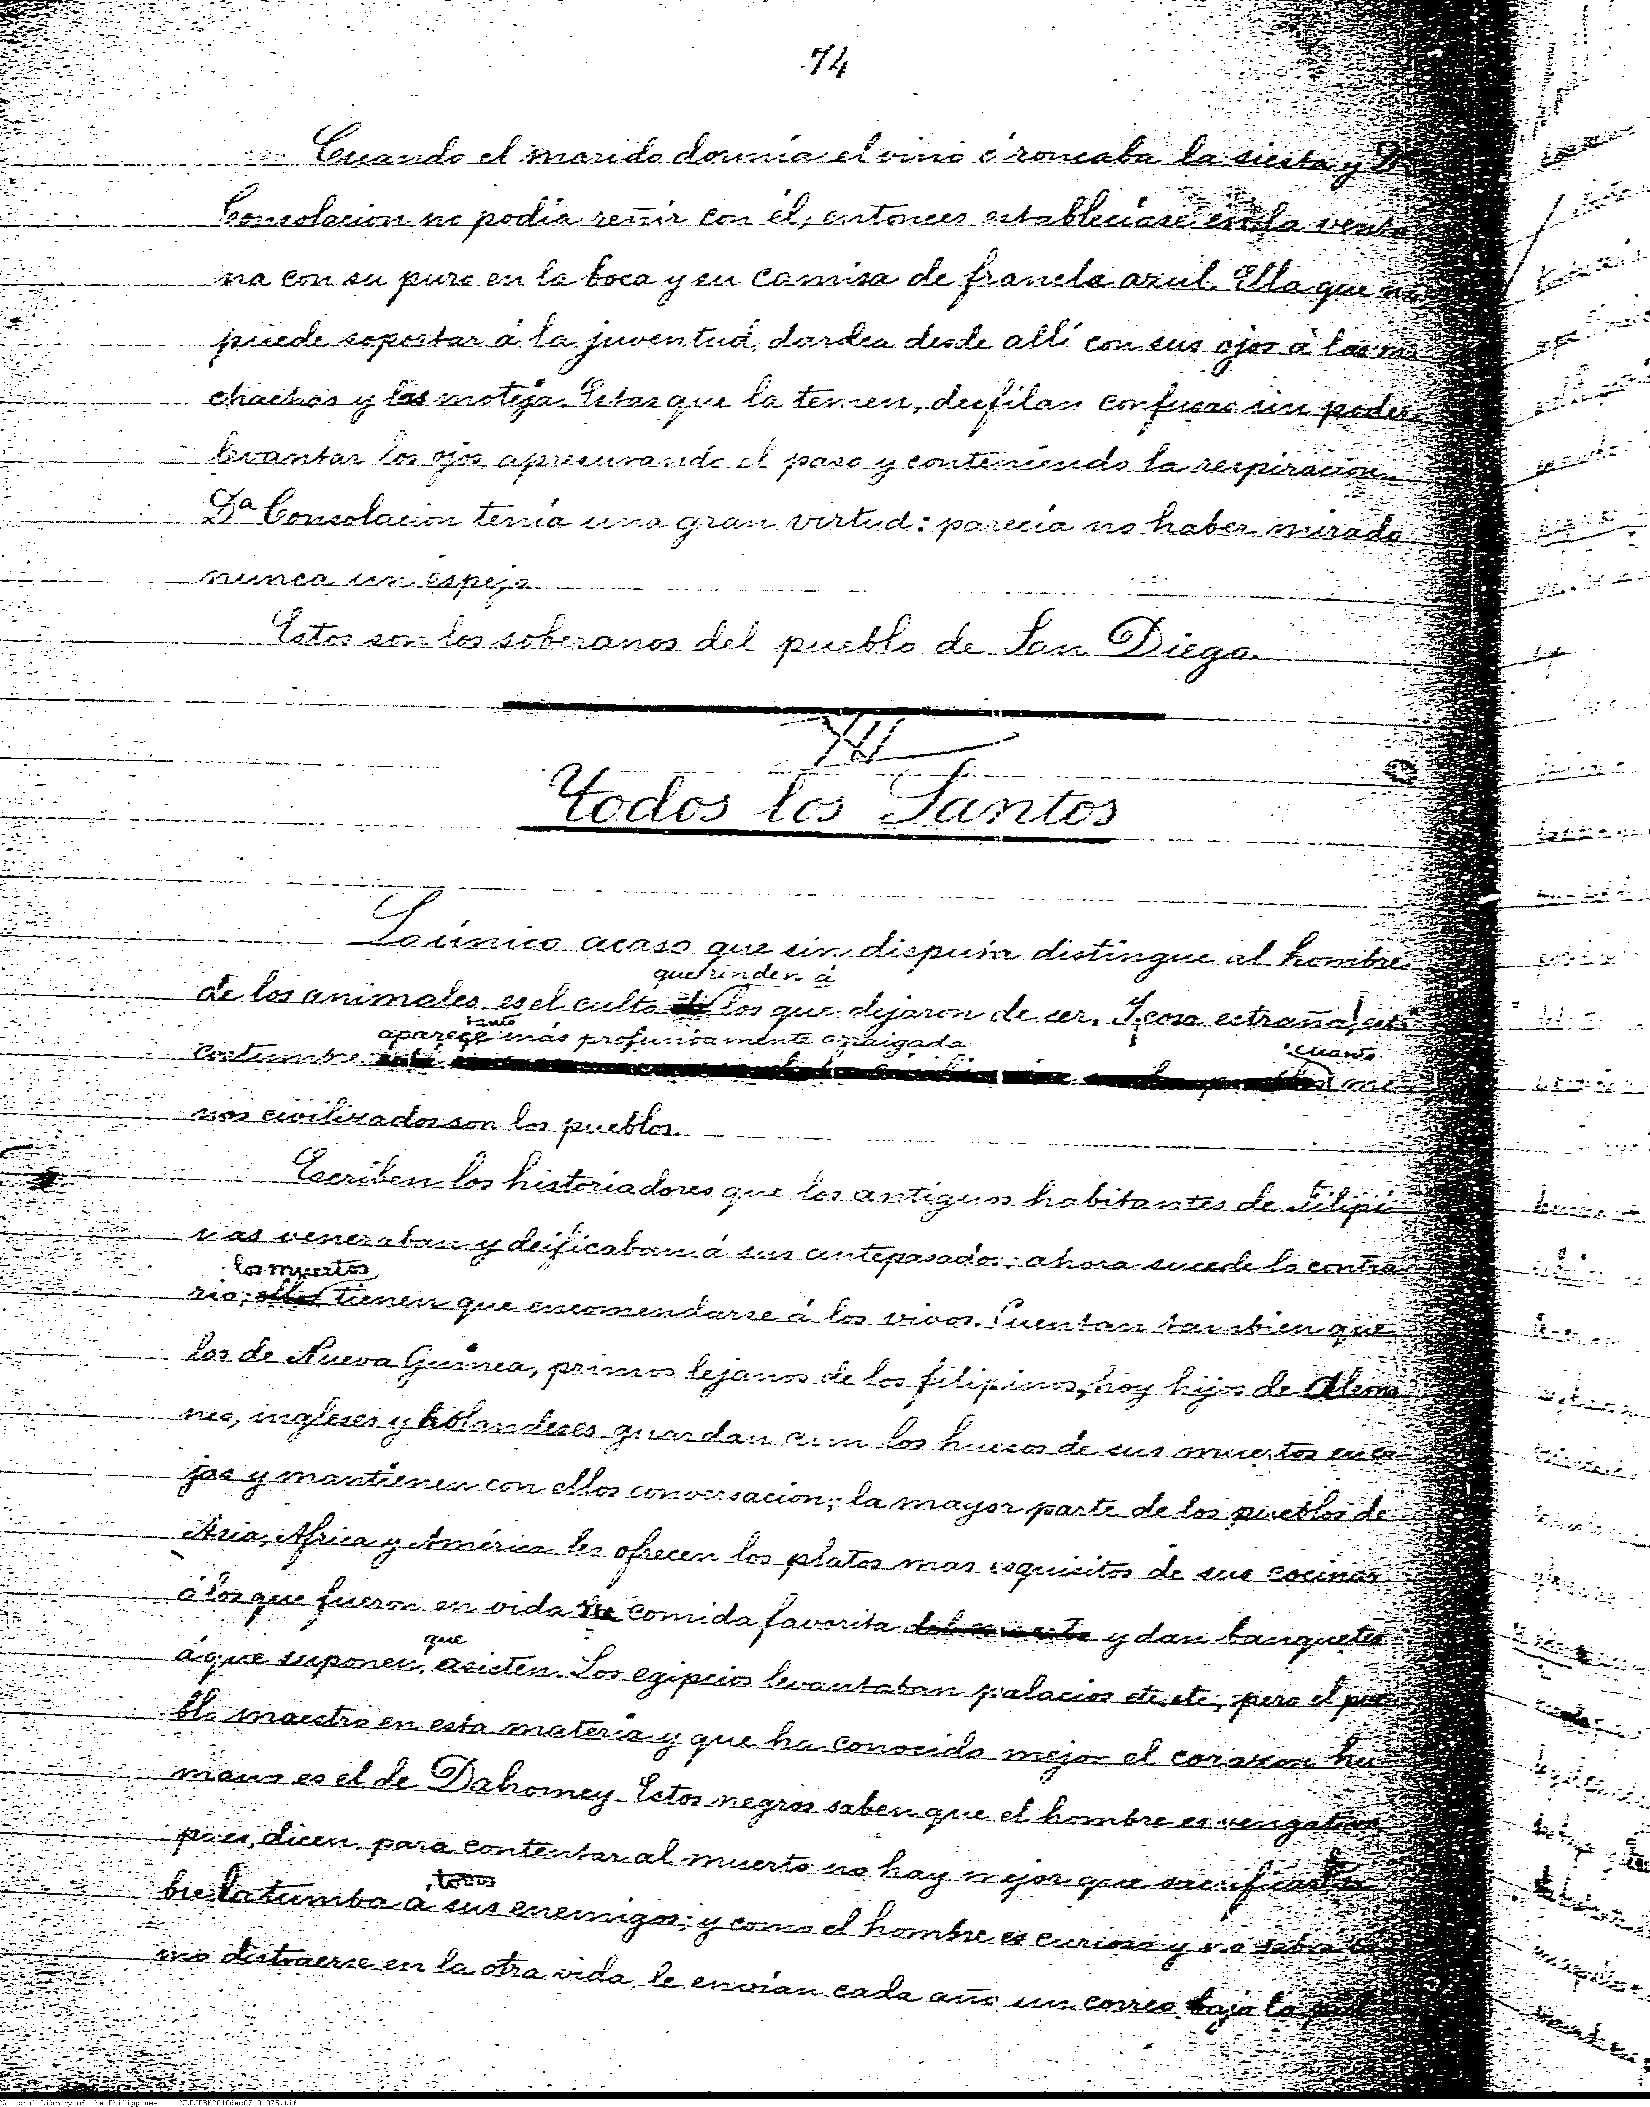 74
Cuando el marido dormía el vino ó roncaba la siesta y Dª
Consolacion no podía reñir con él, entonces establecíase en la venta
na con su puro en la boca y su camisa de franela azul. Ella que no
puede sopostar á la juventud, dardea desde allí con sus ojos á las mu
chachas y las moteja. Estas que la temen, desfilan confusas sin poder
levantar los ojos apresurando el paso y conteniendo la respiracion.
Dª Consolacion tenía una gran virtud: parecía no haber mirado
nunca un espejo
Estos son los soberanos del pueblo de San Diego.
XII
Todos los Santos
Lo único acaso que sin disputa distingue al hombre
que rinden á
de los animales es el culto los que dejaron de ser. Y cosa estraña! esta
tanto
aparece más profundamente arraigada
cuanto
costumbre me
nos civilizados son los pueblos.
Escriben los historiadores que los antiguos habitantes de Filipi
nas veneraban y deificaban á sus antepasados; ahora sucede lo contra
los muertos
rio; tienen que encomendarse á los vivos. Cuentan tambien que
los de Nueva Guinea, primos lejanos de los filipinos, hoy hijos de Alema
nes, ingleses y holandeses guardan aun los huesos de sus muertos en ca
jas y mantienen con ellos conversacion; la mayor parte de los pueblos de
Asia, Africa y América les ofrecen los platos mas esquisitos de sus cocinas
á los que fueron en vida su comida favorita y dan banquetes
que
á que suponen asisten. Los egipcios levantaban palacios etc, etc, pero el pue
blo maestro en esta materia y que ha conocido mejor el corazon hu
mano es el de Dahomey. Estos negros saben que el hombre es vengativo
pues, dicen, para contentar al muerto no hay mejor que sacrificar so
todos
bre la tumba á sus enemigos; y como el hombre es curioso y no sabra co
mo distraerse en la otra vida, le envían cada año un correo bajo la piel